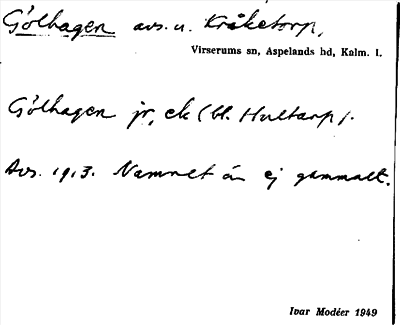 Gölhagen avs. u. Kråketorp,
Virserums sn, Aspelands hd, Kalm. l.
Gölhagen jr, ek (bl. Hultarp).
Avs. 1913. Namnet än ej gammalt.
Ivar Modéer 1949